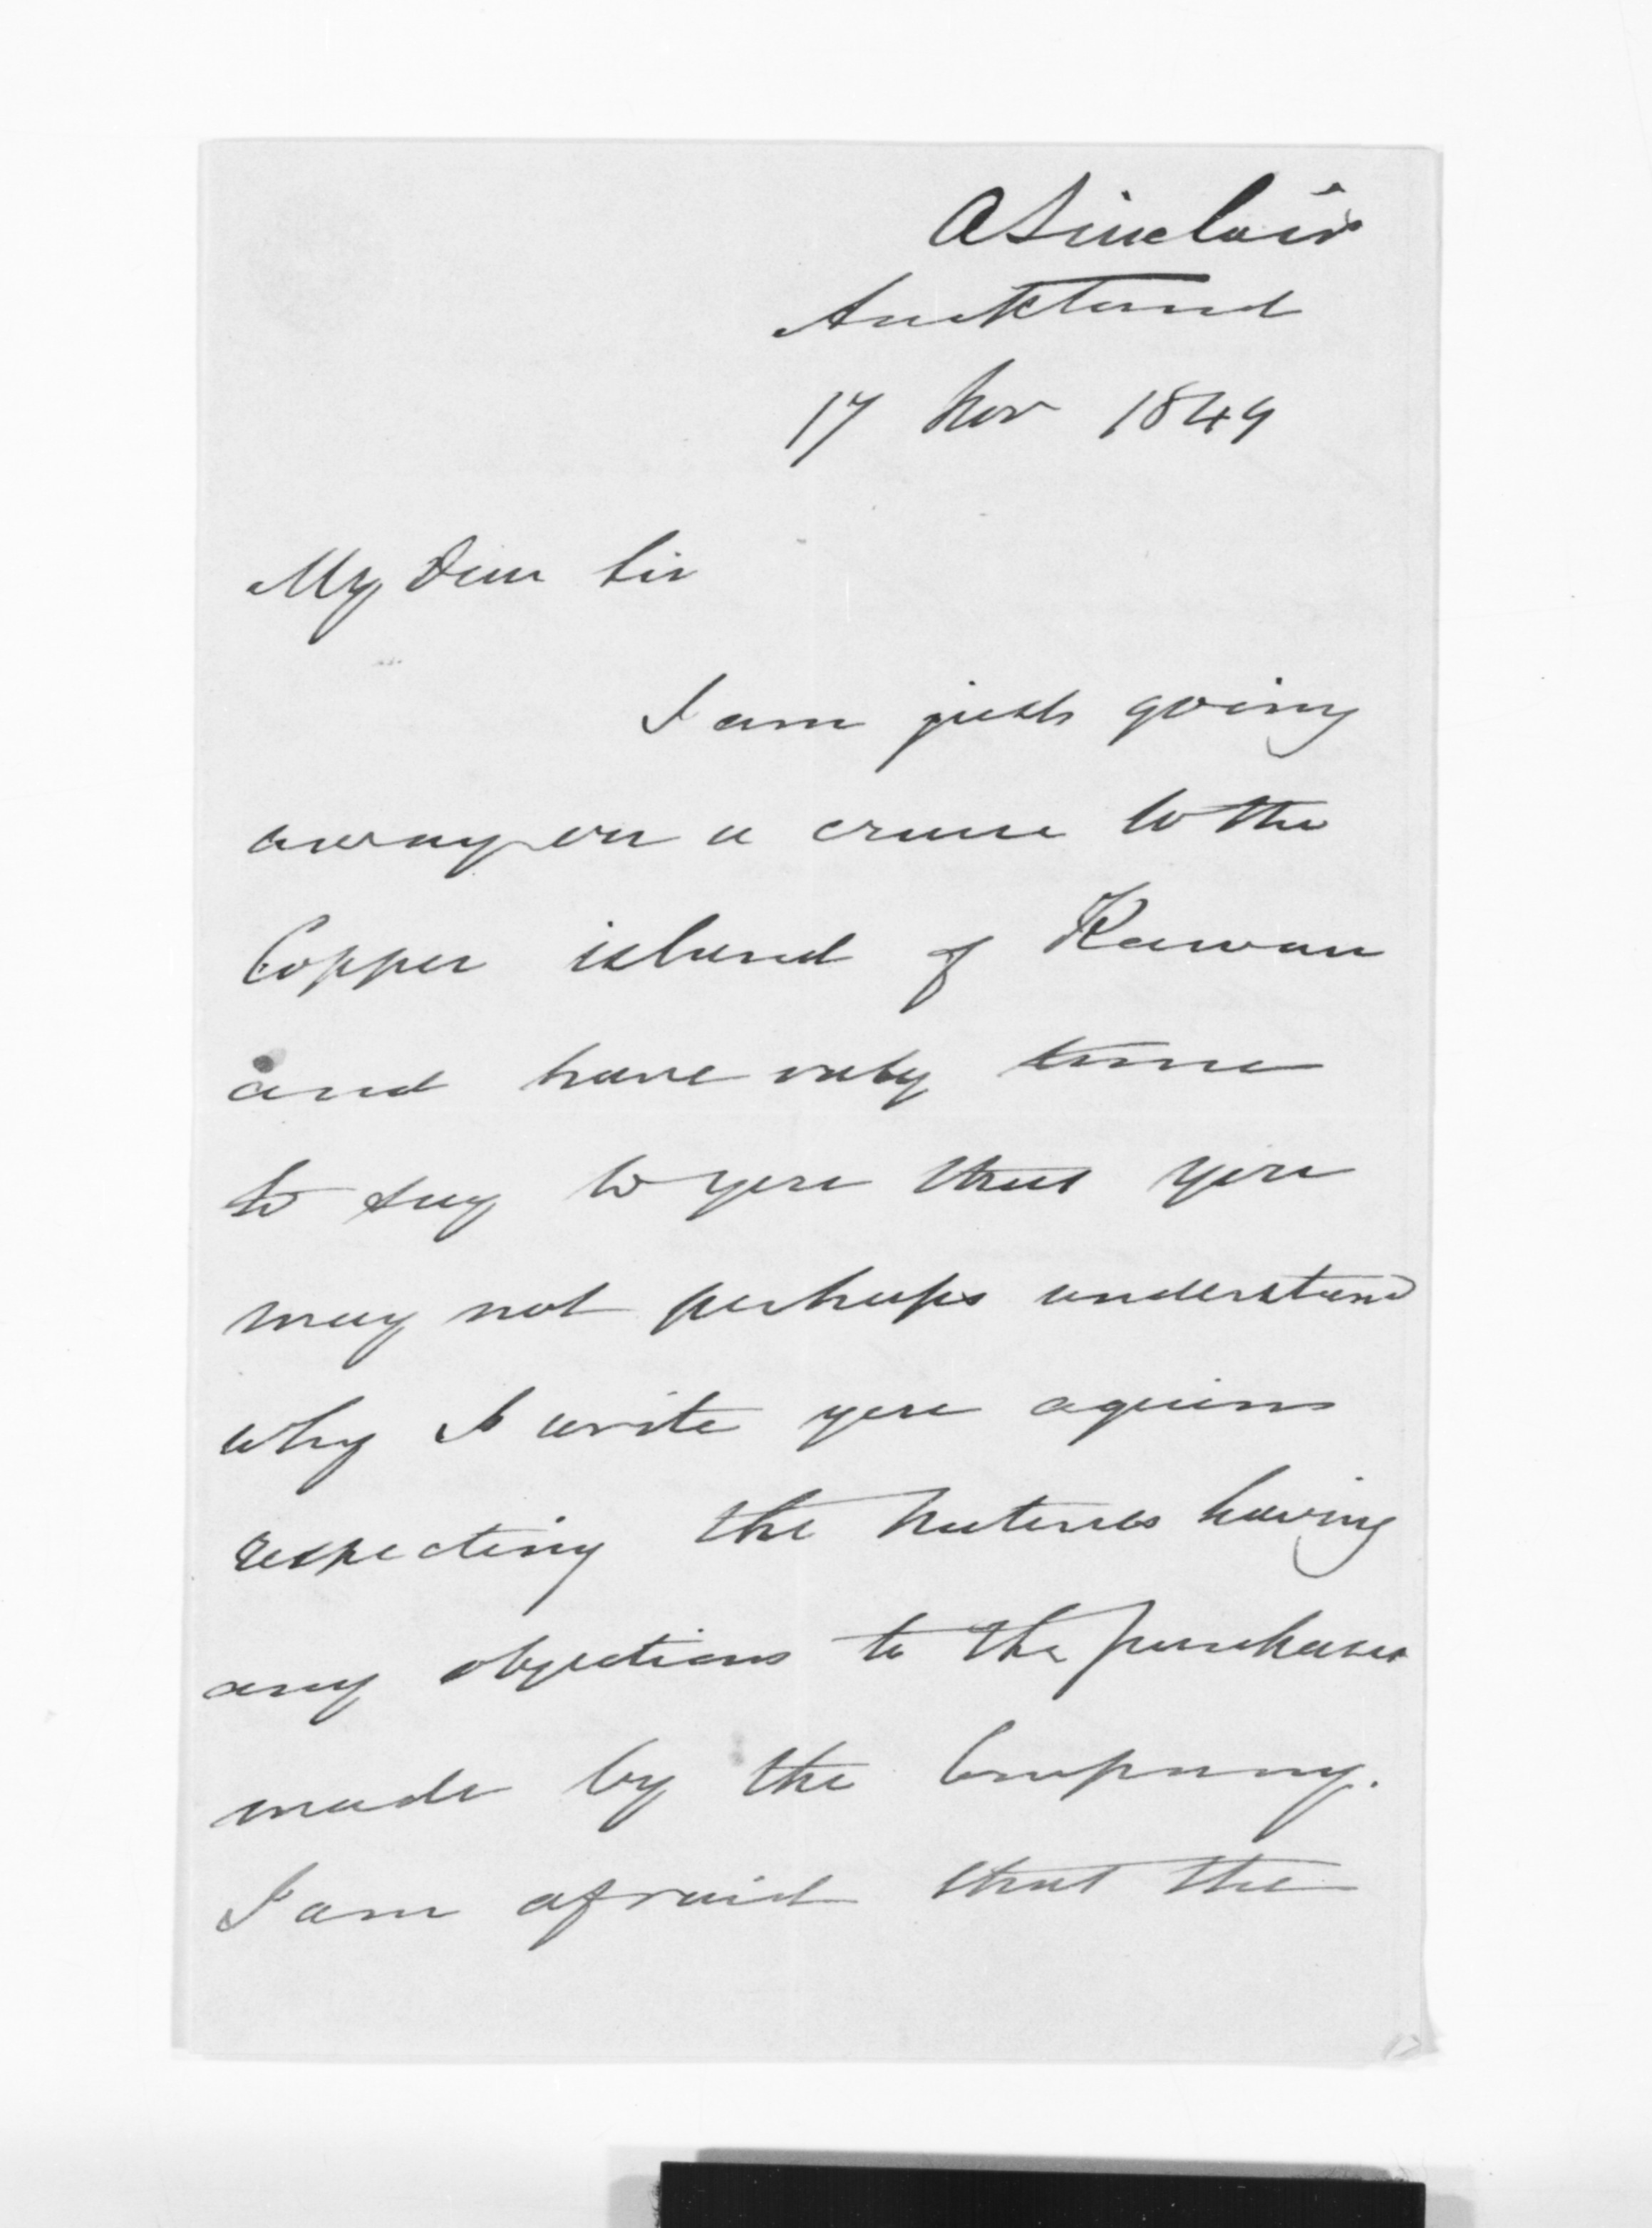 A Sinclair
Auckland
17 Nov 1849
My Dear Sir
I am just going
away on a cruise to the
Copper island of Kawau
and have only time
to say to you that you
may not perhaps understand
why I write you again
respecting the Natives having
any objections to the purchases
made by the Company.
I am afraid that the